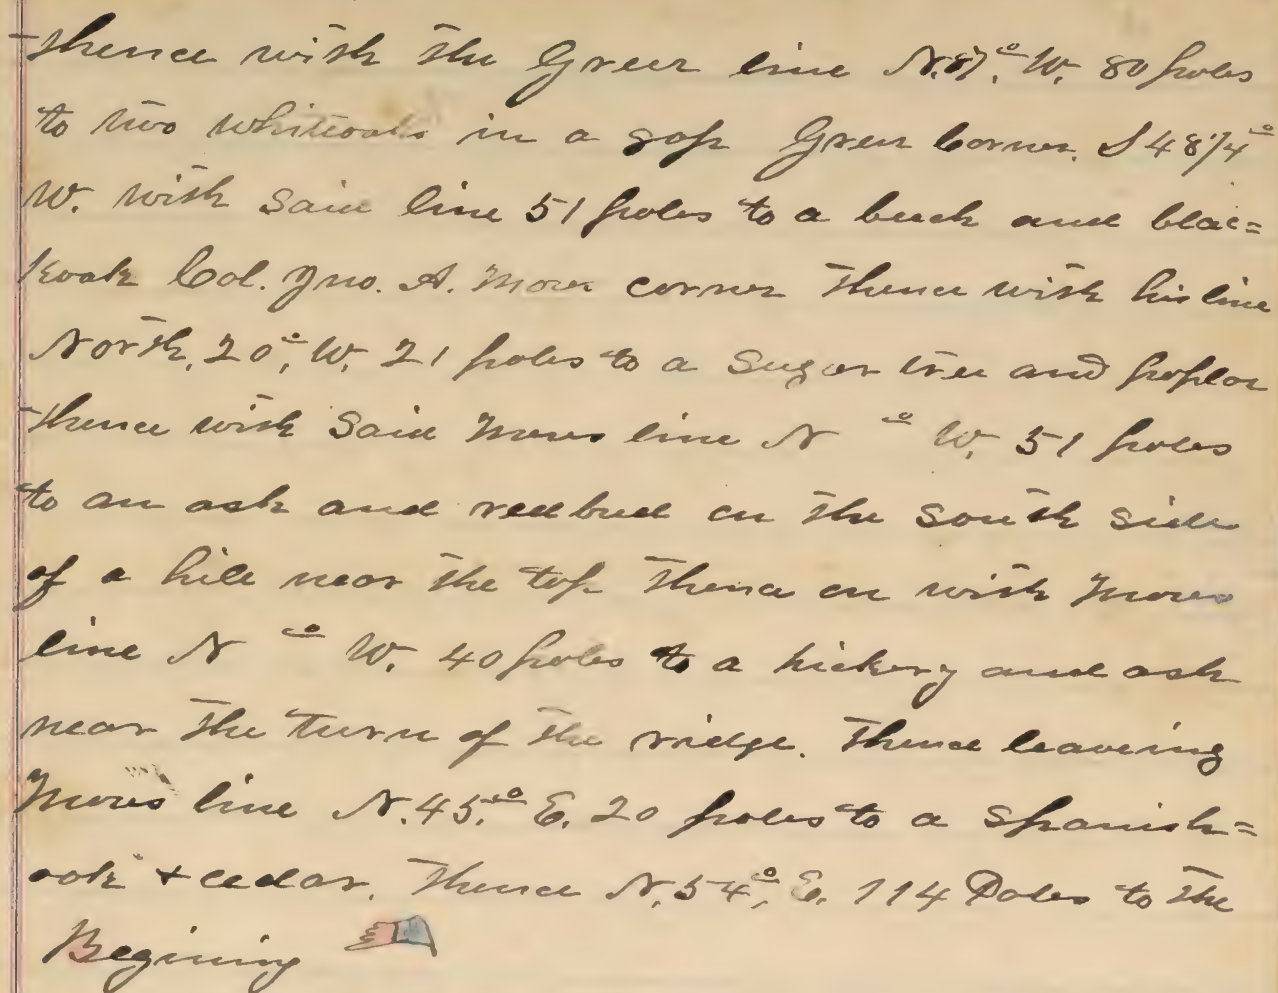 thence with the Greer line N.87.° W. 80 poles
to two whiteoaks in a gap Greer Corner. S 48 1/4°
W. with said line 51 poles to a buck and blac=
koak Col. Jno. A. Moors corner thence with his line
North, 20°, W. 21 poles to a sugar tree and poplar
thence with said Moors line N ° W, 51 poles
to an ash and redbud on the south side
of a hill near the top thence on with Moors
line N ° W. 40 poles to a hickory and ash
near the turn of the ridge. thence leaving
Moors line N.45.° E. 20 poles to a Spanish=
oak + cedar. thence N.54°, E. 114 Poles to the
Begining